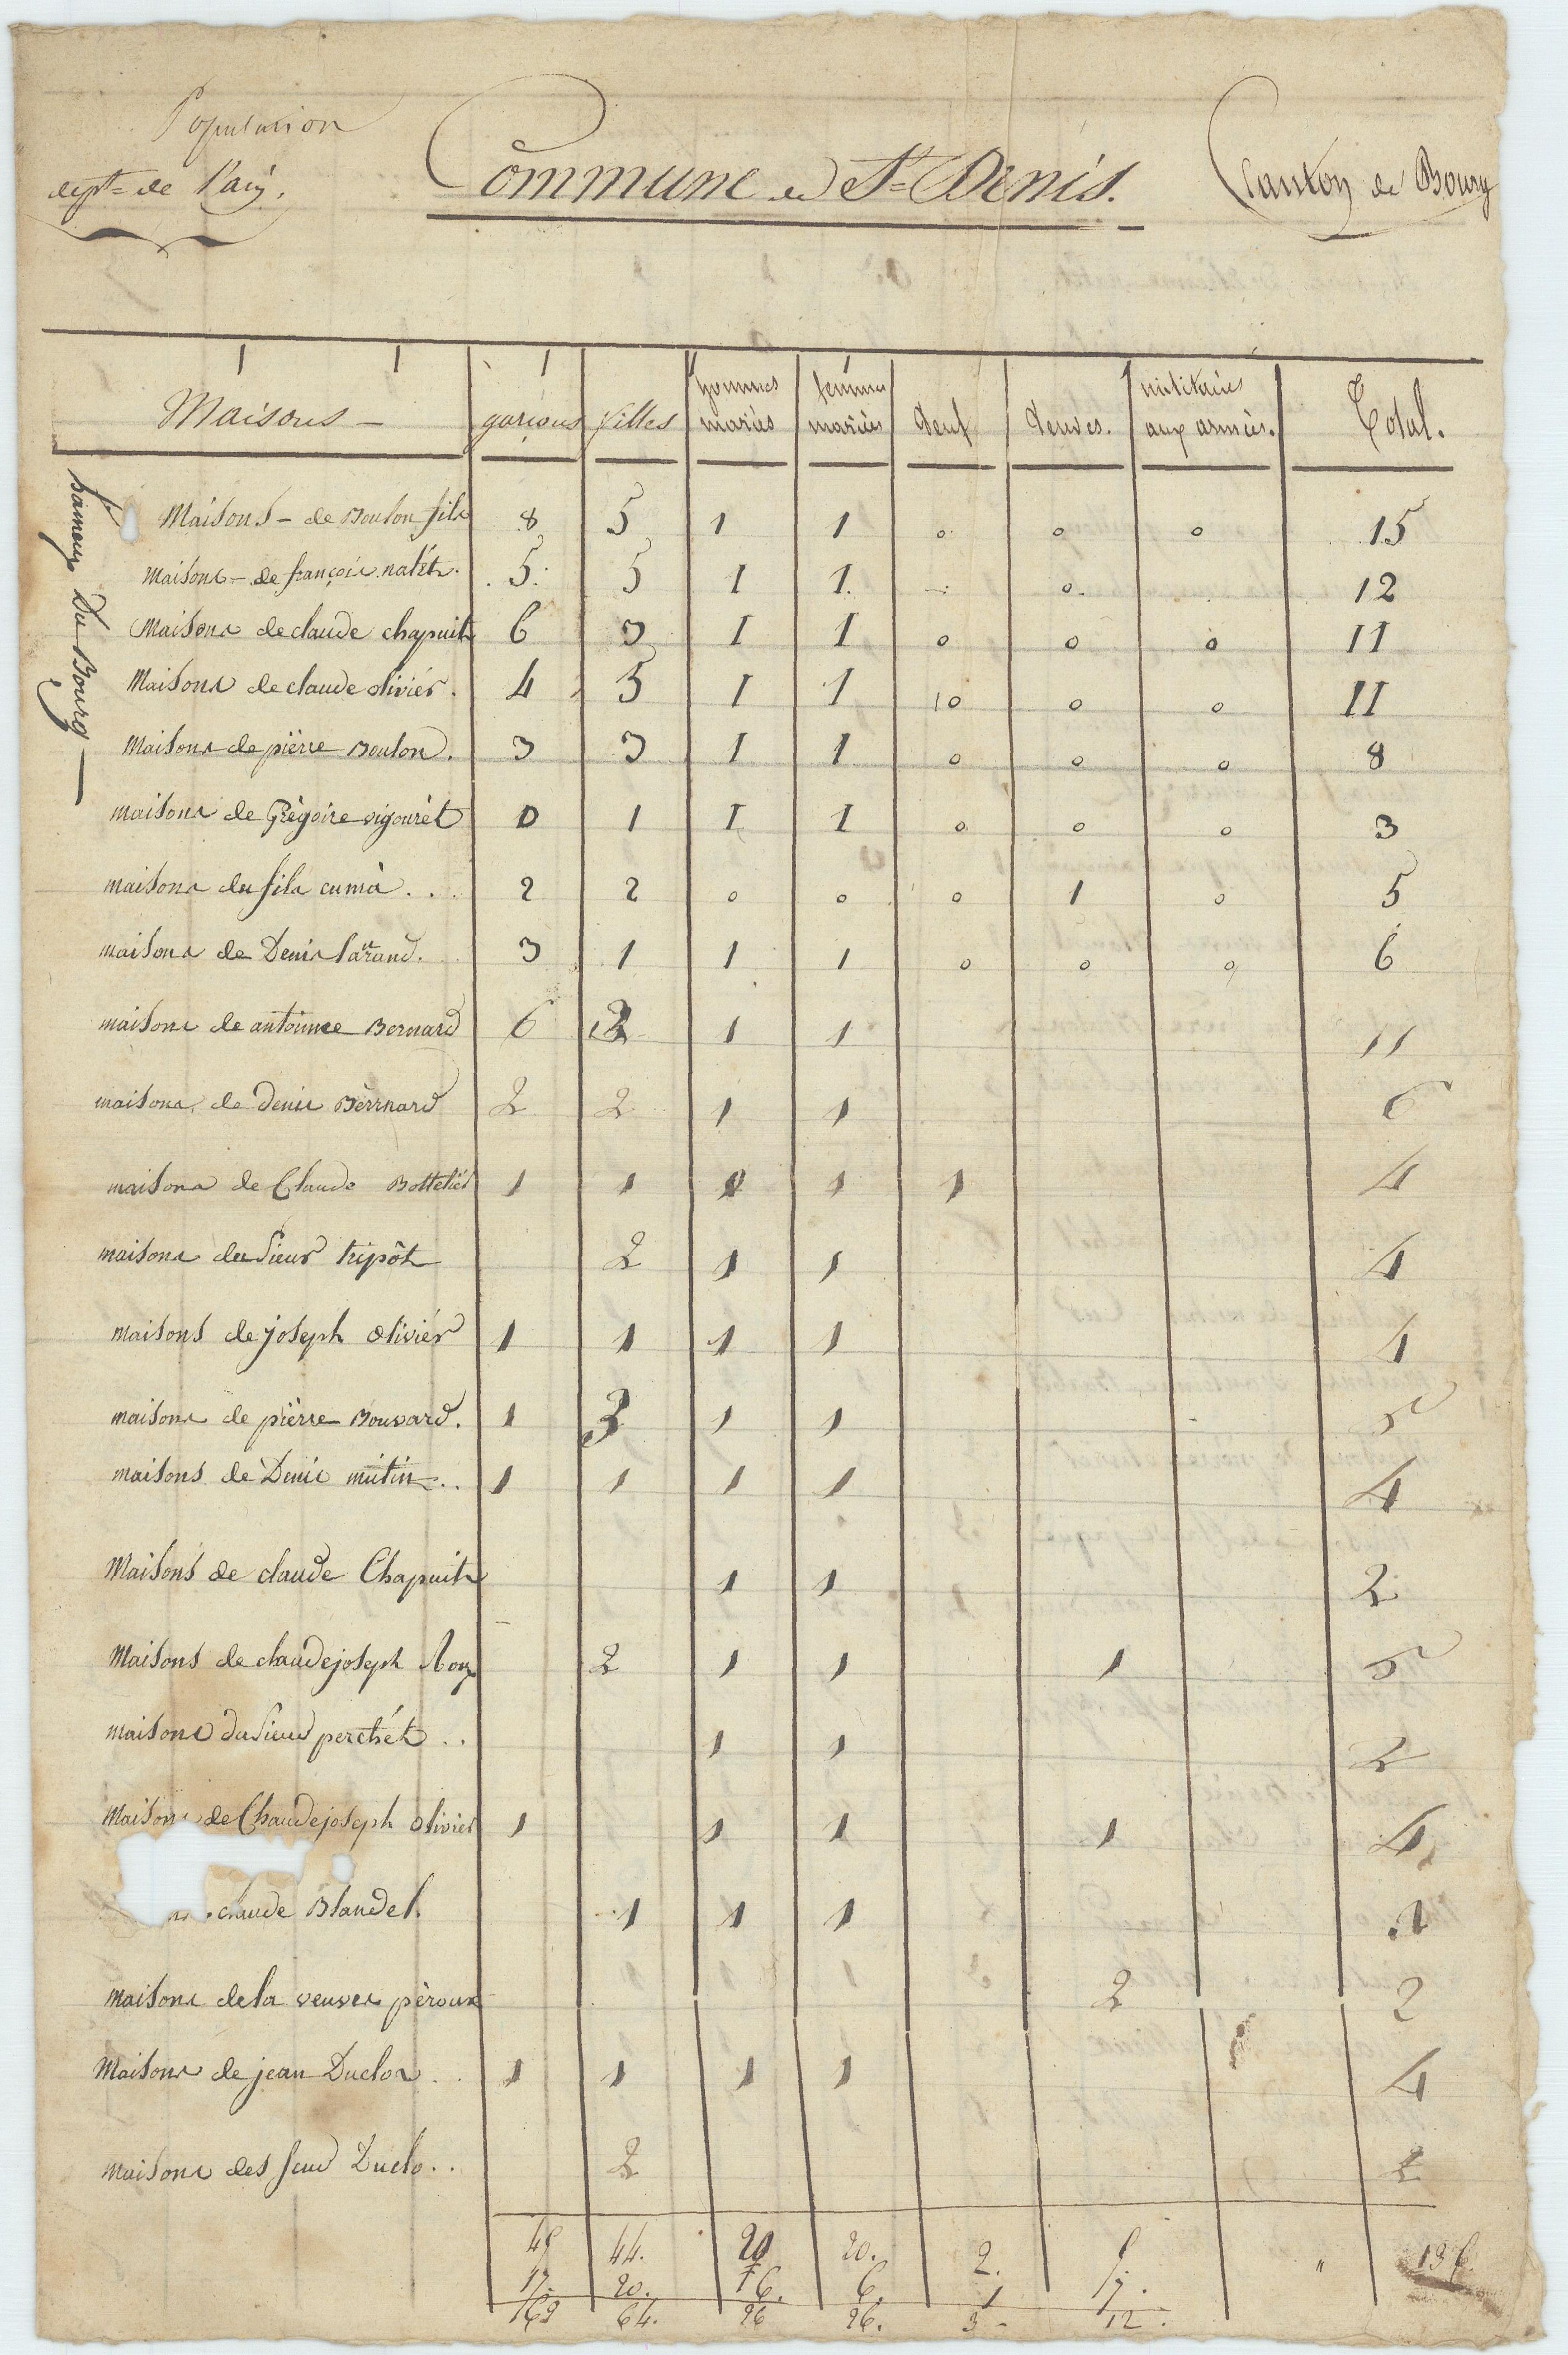 Population
dept= de l'ain.
Commune de St= Denis.
Canton de Bourg
Maisons - garçons filles hommes mariés femmes mariées Veuf Veuves. militaires aux armées. Total.
hameau Du Bourg —
Maisons - de Bouton fils 8 5 1 1 0 0 0 15
Maisons - de françois natét. 5 5 1 1 0 12
Maisons de claude chapuit 6 3 1 1 0 0 0 11
Maisons de claude olivier. 4 5 1 1 10 0 0 11
Maisons de pièrre Bouton. 3 3 1 1 0 0 0 8
maisons de Grégoire vigourét 0 1 1 1 0 0 0 3
maisons du fils . . . 2 2 0 0 0 1 0 5
maisons de Denis 3 1 1 1 0 0 0 6
maisons de antoinne Bernard 6 1 1 11
maisons de denis Bèrrnard 2 2 1 1 6
maisons de Claude Bottelier 1 1 1 1 4
maisons du sieur tripôt 2 1 1 4
maisons de joseph olivier 1 1 1 1 4
maisons de pièrre Bouvard. 1 3 1 1 5
maisons de Denis mutin . . 1 1 1 1 4
Maisons de claude Chapuit 1 1 2
Maisons de claudejoseph Roux 2 1 1 1 5
maisons du sieur perchét . . 1 1 2
Maisons de Chaudejoseph olivier 1 1 1 1 4
claude Blandel. 1 1 1
maisons de la veuves pèroux 2 2
Maisons de jean Duclos . . 1 1 1 1 4
maisons des Duclo . . 2 2
44. 20 20. 2. "
17. 20. 6. 6. 1 7.
64. 26 26. 3 - 12.